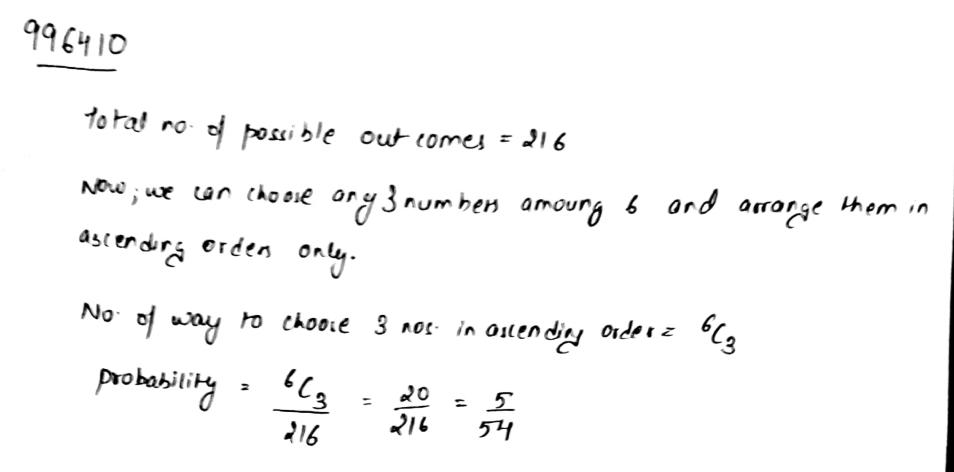 996410
total no. of possible out comes = 216
Now; we can choose any 3 numbers amoung 6 and arrange them in
ascending orders only.
No. of way to choose 3 nos. in ascending order = ⁶C₃
probability = ⁶C₃/216 = 20/216 = 5/54